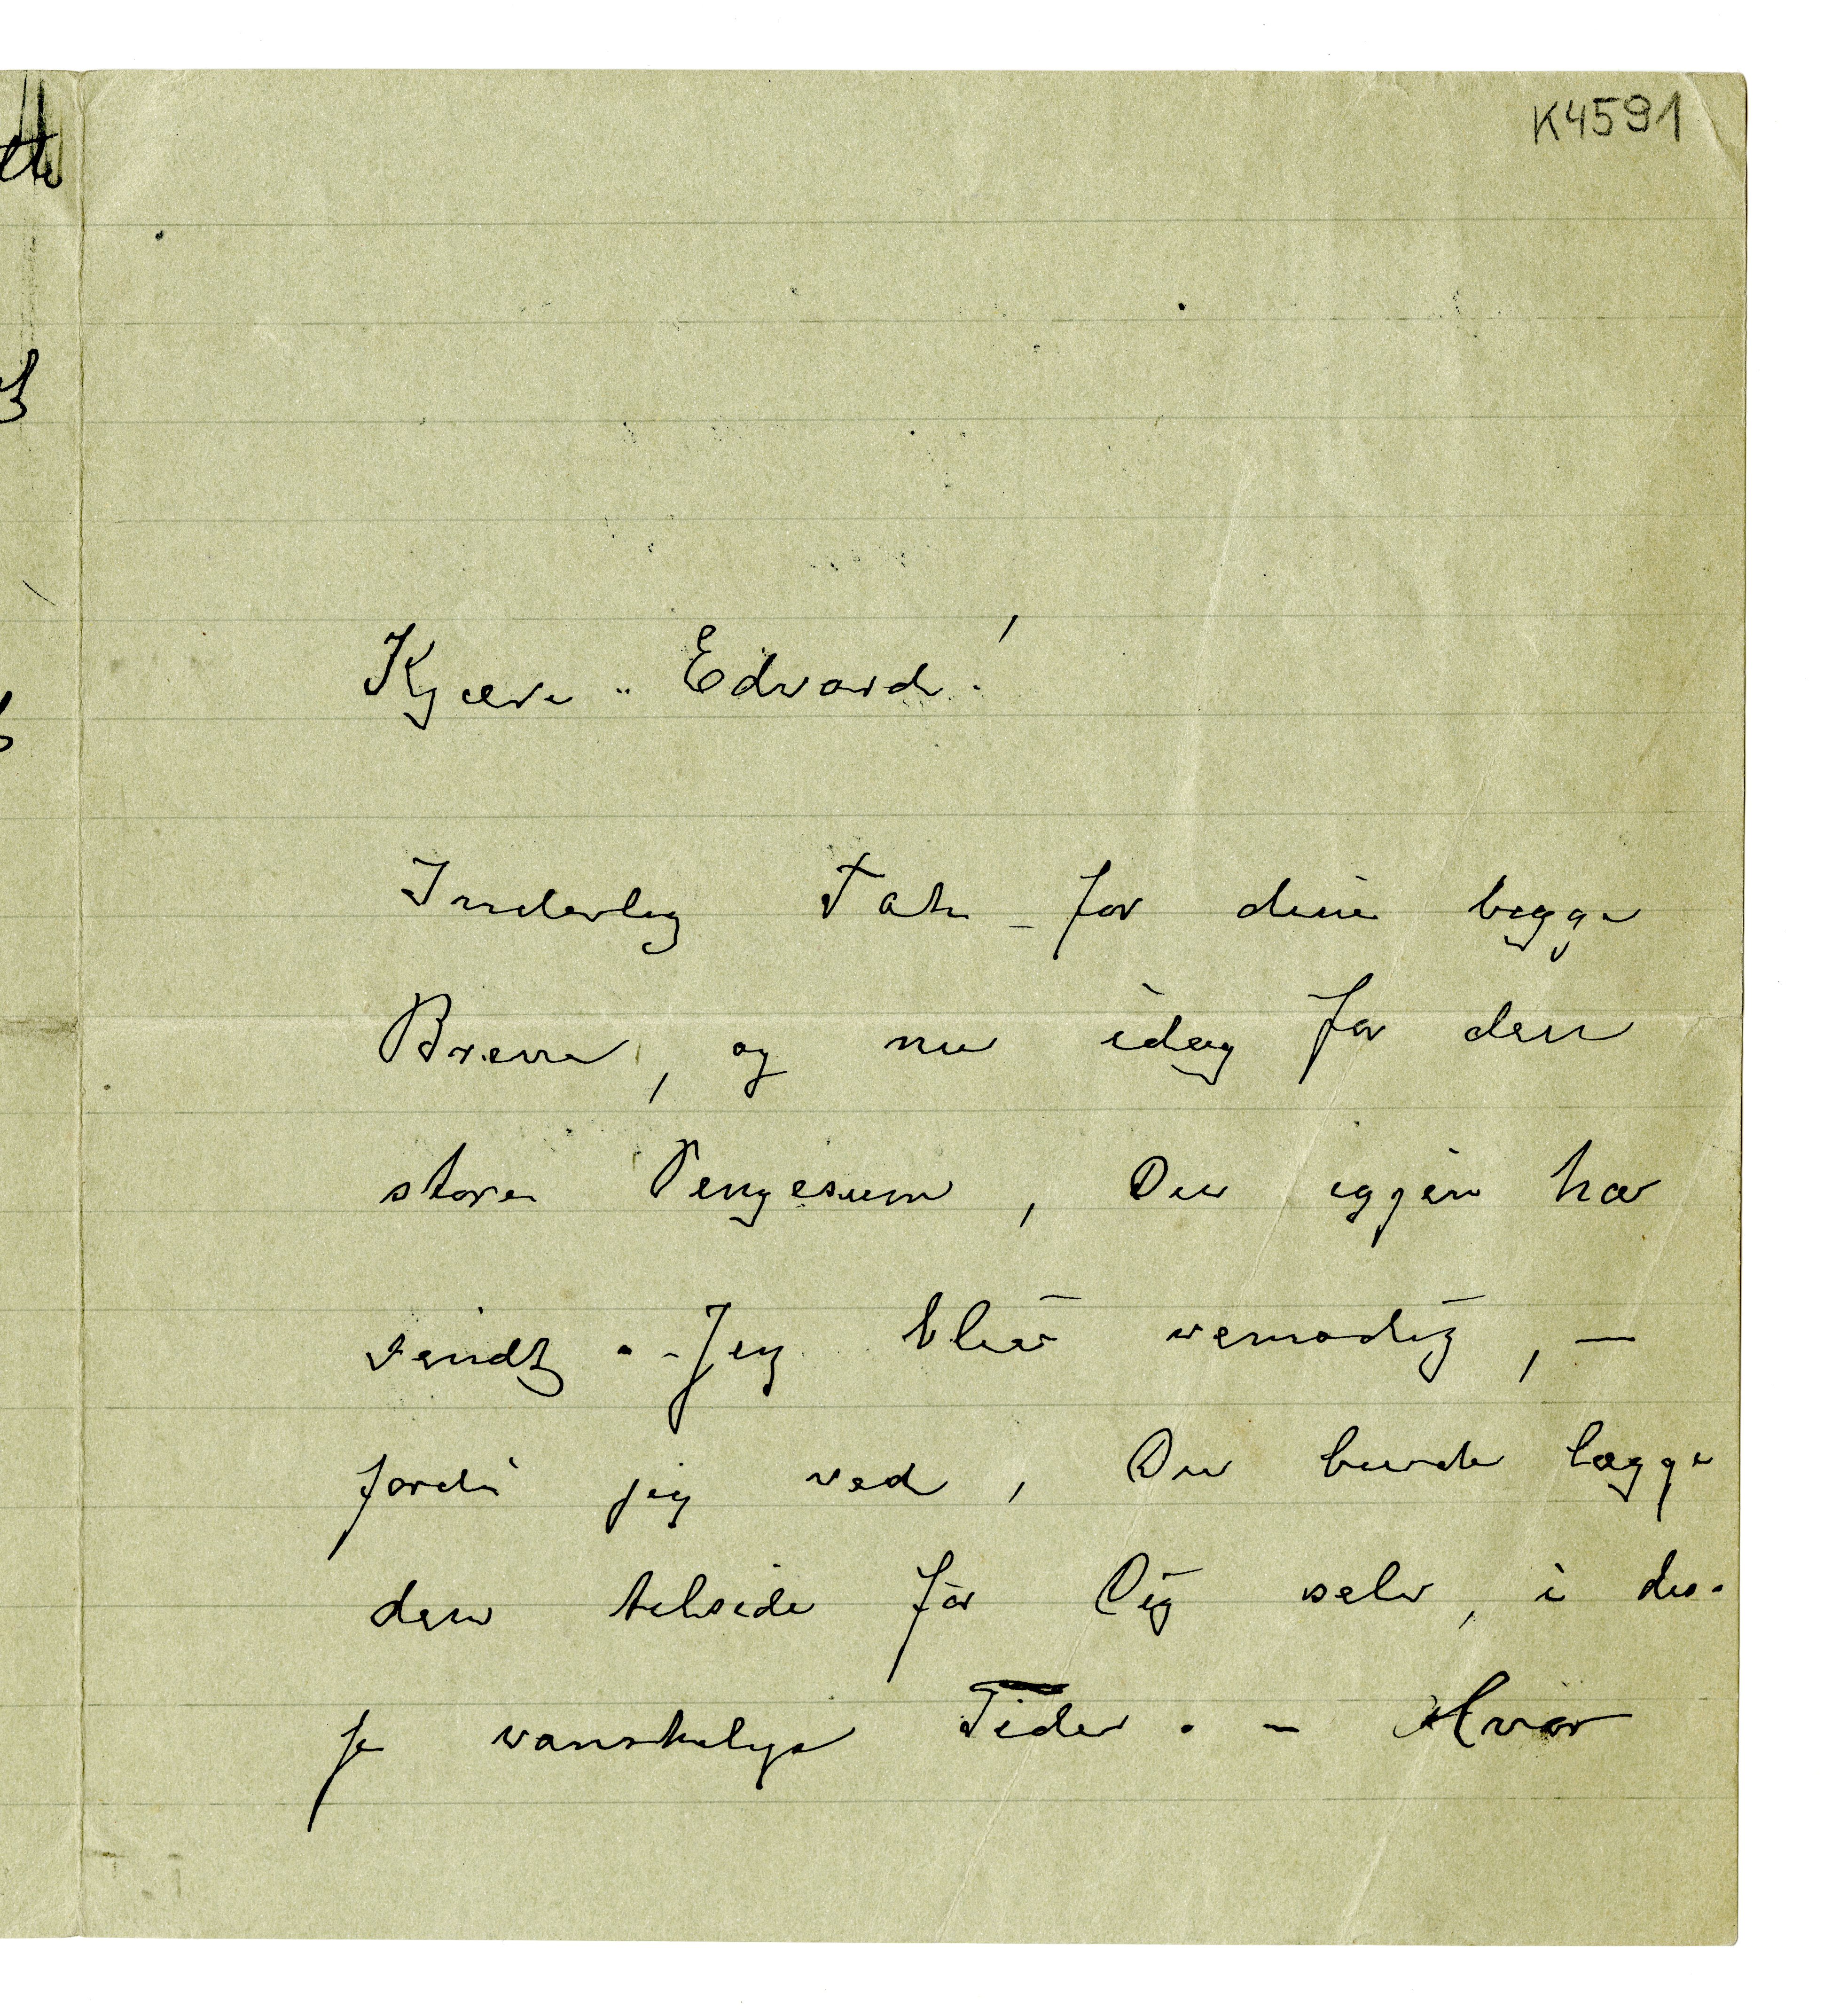 K4591
Kjære Edvard!
Inderlig Tak for dine begge
Breve, og nu idag for den
store Pengesum, Du igjen har
sendt. - Jeg blir vemodig, —
fordi jeg ved, Du burde lægge
den tilside for Dig selv, i dis-
se vanskelige Tider. - Hvor